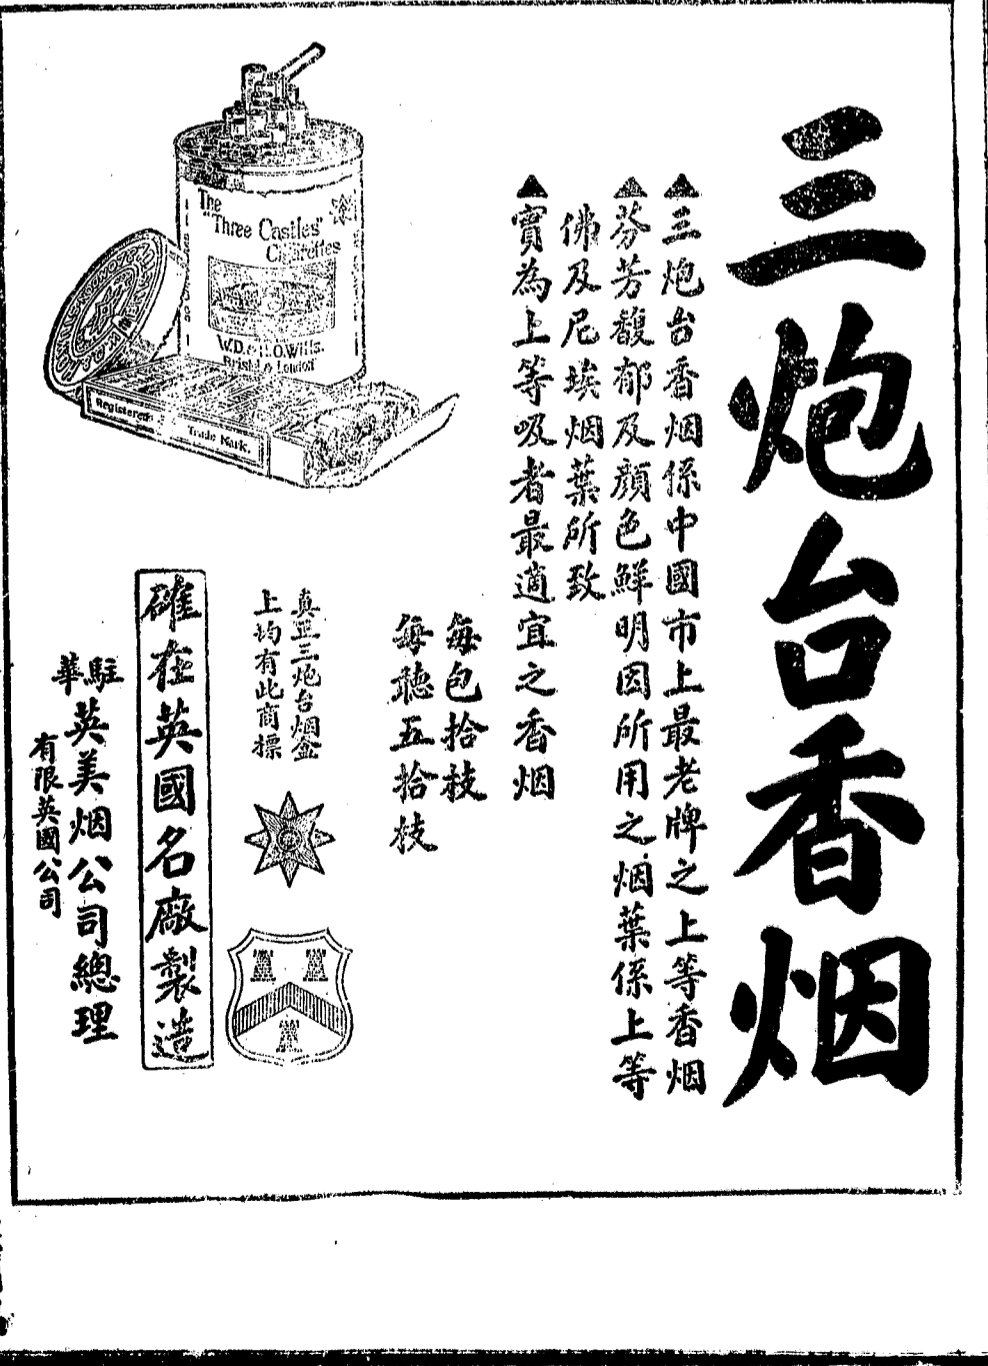 三炮台香烟
▲三炮台香烟係中國市上最老牌之上等香烟
▲芬芳馥郁及顔色鮮明因所用之烟葉係上等
佛及尼埃烟葉所致
▲實為上等吸者最適宜之香烟
每包拾枝
每聽五拾枝
The
"Three Castles"
Cigarettes
W.D. & H.O. Wills.
Bristol & London
Registered
Trade Mark.
真正三炮台烟盒
上均有此商標
確在英國名廠製造
駐華英美烟公司總理
有限英國公司